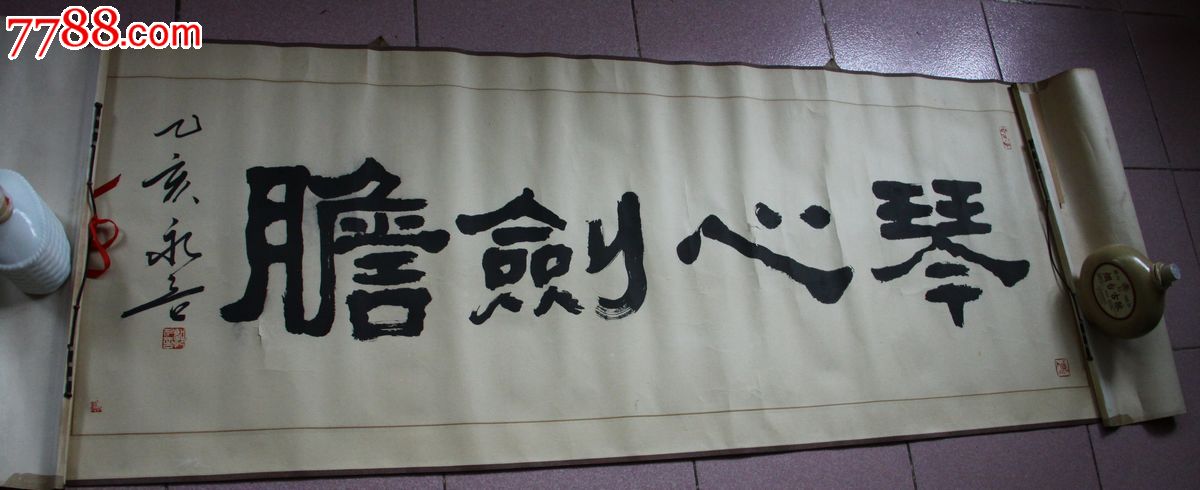 7788.com
琴心劍膽
乙亥永善